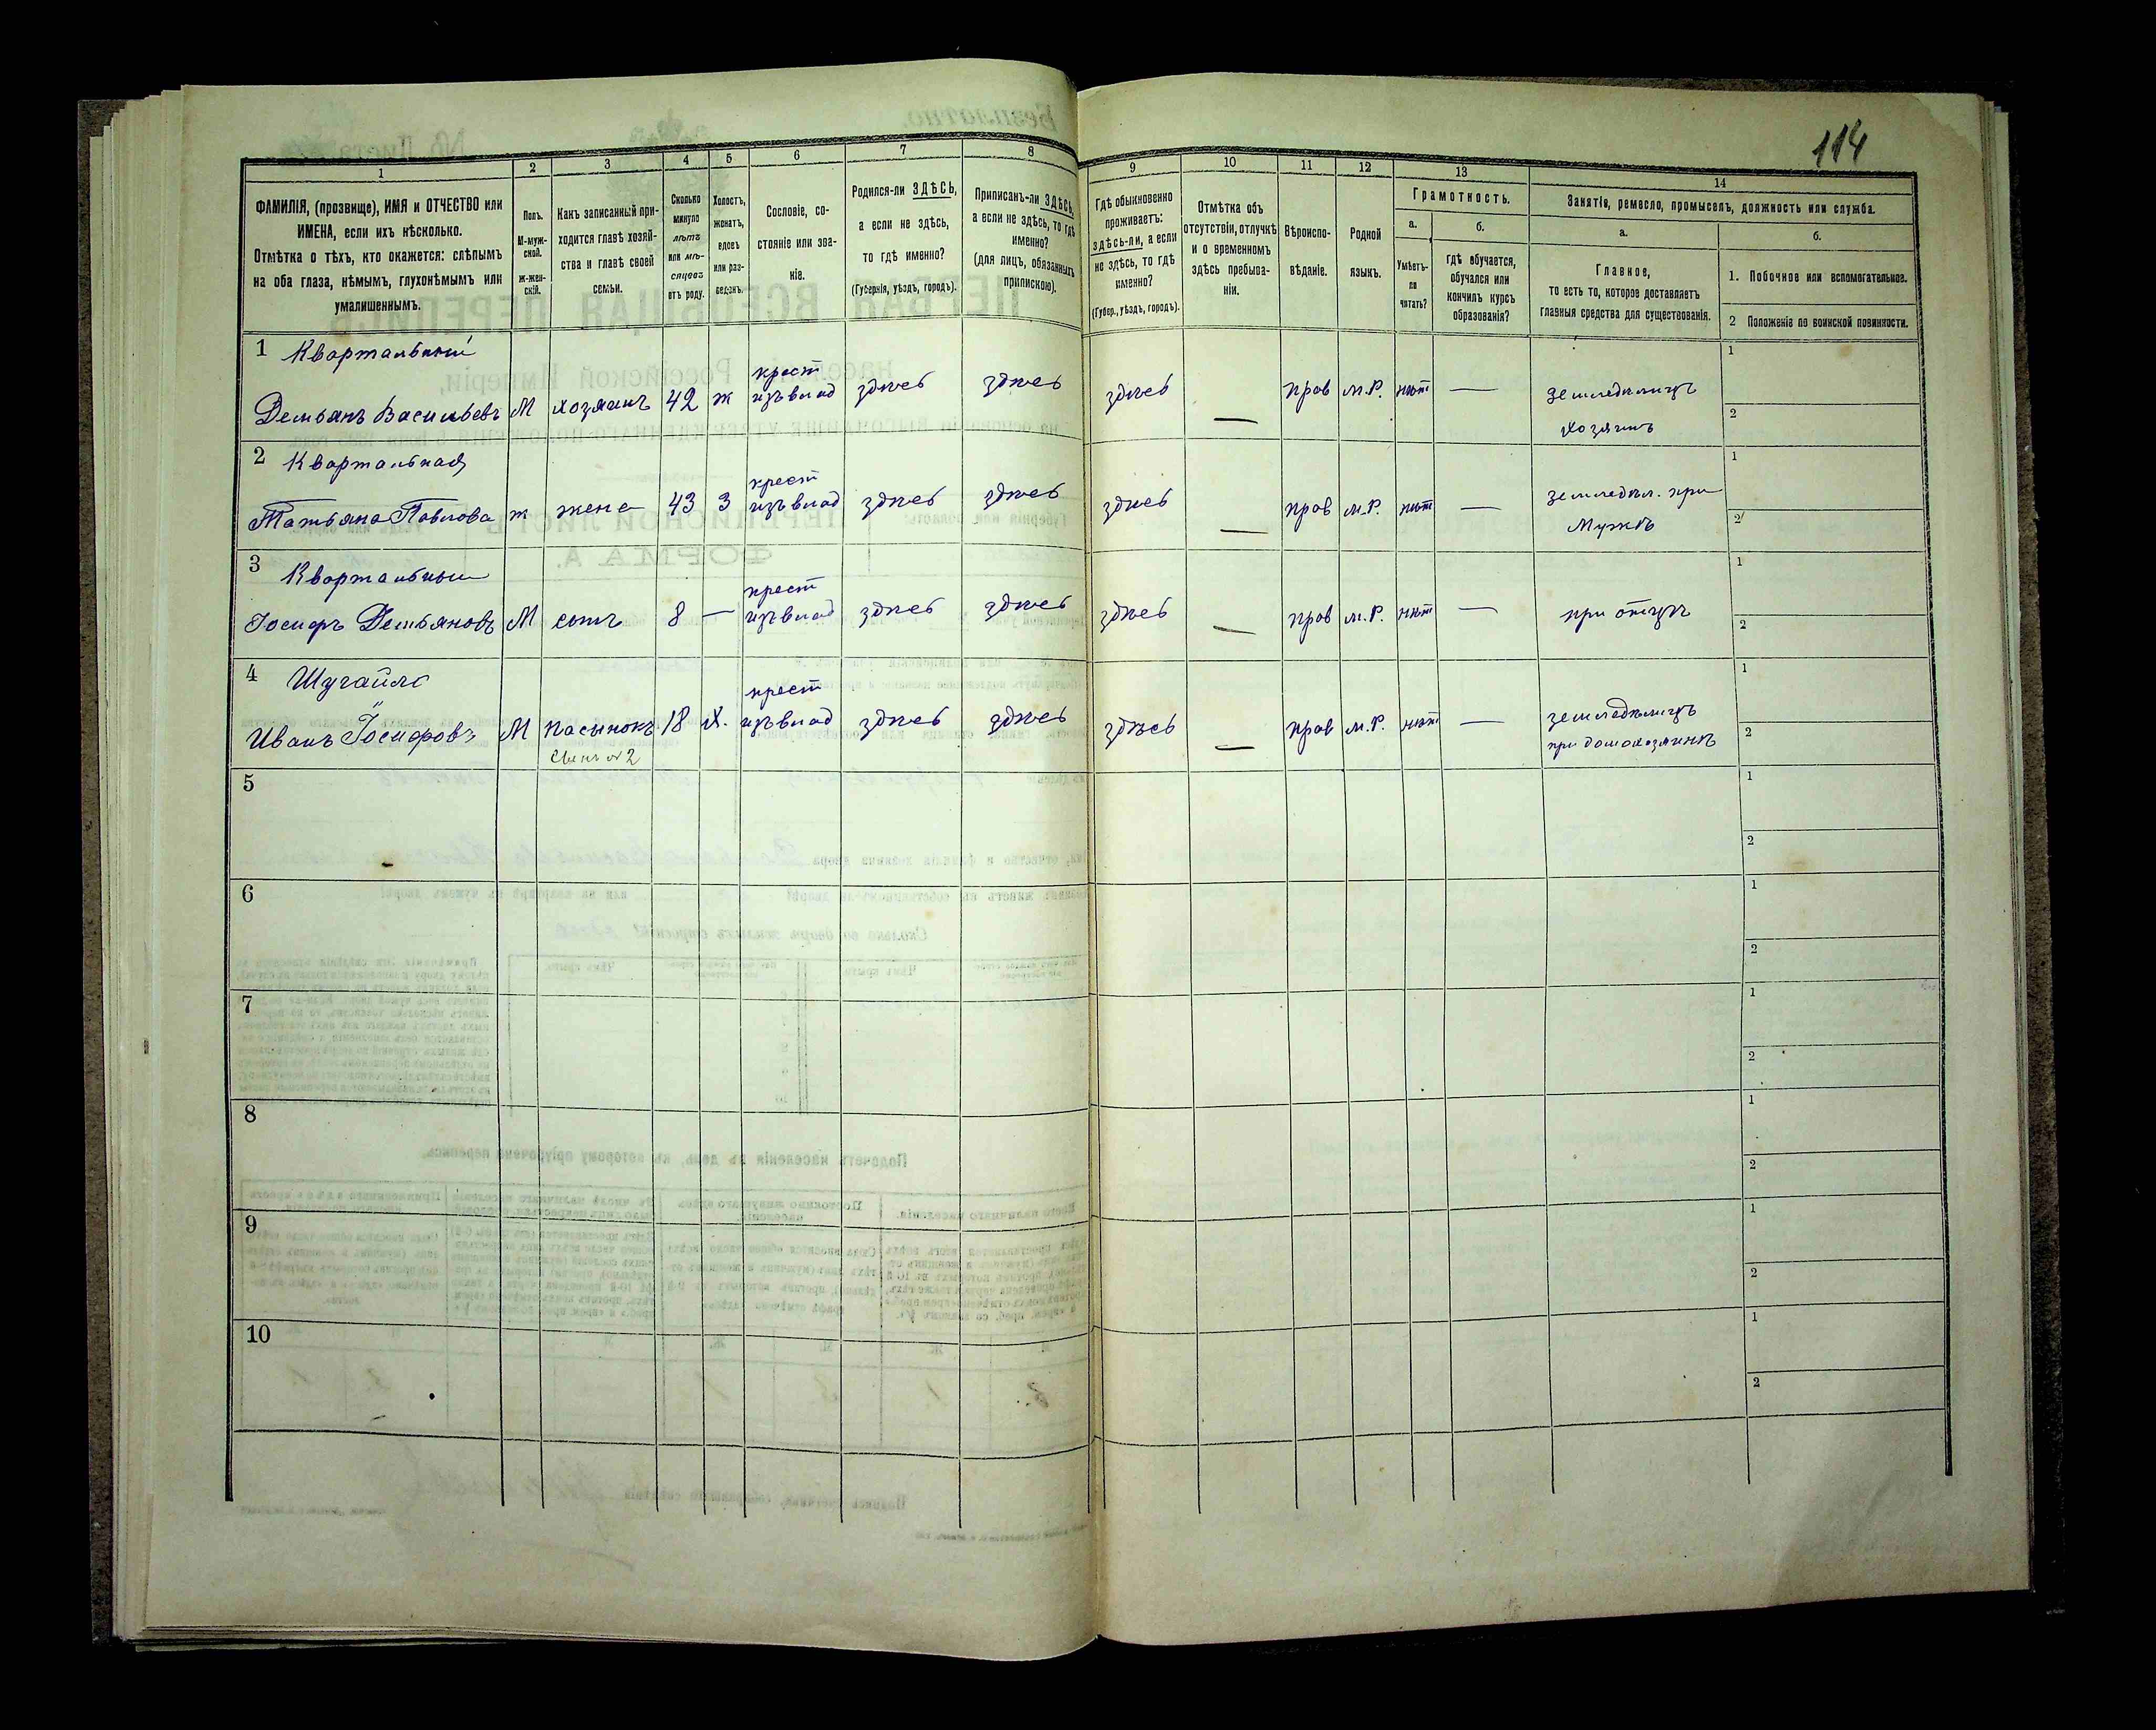 114
1
2
3
4
5
6
7
8
9
10
11
12
13
14
ФАМИЛІЯ, (прозвище), ИМЯ и ОТЧЕСТВО или
ИМЕНА, если ихъ нѣсколько.
Отмѣтка о тѣхъ, кто окажется: слѣпымъ
на оба глаза, нѣмымъ, глухонѣмымъ или
умалишеннымъ.
Полъ.
М-муж-
ской.
ж-жен-
скій.
Какъ записанный при-
ходится главѣ хозяй-
ства и главѣ своей
семьи.
Сколько
минуло
лѣтъ
или мѣ-
сяцевъ
отъ роду.
Холостъ,
женатъ,
вдовъ
или раз-
веденъ.
Сословіе, со-
стояніе или зва-
ніе.
Родился-ли ЗДѢСЬ,
а если не здѣсь,
то гдѣ именно?
(Губернія, уѣздъ, городъ).
Приписанъ-ли ЗДѢСЬ,
а если не здѣсь, то гдѣ
именно?
(для лицъ, обязанныхъ
припискою).
Гдѣ обыкновенно
проживаетъ:
здѣсь-ли, а если
не здѣсь, то гдѣ
именно?
(Губер., уѣздъ, городъ).
Отмѣтка объ
отсутствіи, отлучкѣ
и о временномъ
здѣсь пребыва-
ніи.
Вѣроиспо-
вѣданіе.
Родной
языкъ.
Грамотность.
а.
б.
Умѣетъ-
ли
читать?
гдѣ обучается,
обучался или
кончилъ курсъ
образованія?
Занятіе, ремесло, промыселъ, должность или служба.
а.
б.
Главное,
то есть то, которое доставляетъ
главныя средства для существованія.
1. Побочное или вспомогательное.
2 Положеніе по воинской повинности.
1 Квартальный
Демьянъ Васильевъ М хозяинъ 42 ж крест изъ влад здѣсь здѣсь здѣсь — прав м.Р. нѣт — земледѣлецъ хозяинъ
1
2
2 Квартальная
Татьяна Павлова ж жена 43 З крест изъ влад здѣсь здѣсь здѣсь — прав м.Р. нѣт — земледѣл. при Мужѣ
1
2
3 Квартальный
Іосифъ Демьяновъ М сынъ 8 — крест изъ влад здѣсь здѣсь здѣсь — прав м.Р. нѣт — при отцѣ
1
2
4 Шугайло
Иванъ Іосифовъ М пасынокъ 18 Х. крест изъ влад здѣсь здѣсь здѣсь — прав м.Р. нѣт — земледѣлецъ при домохозяинѣ
сынъ № 2
1
2
5
1
2
6
1
2
7
1
2
8
1
2
9
1
2
10
1
2